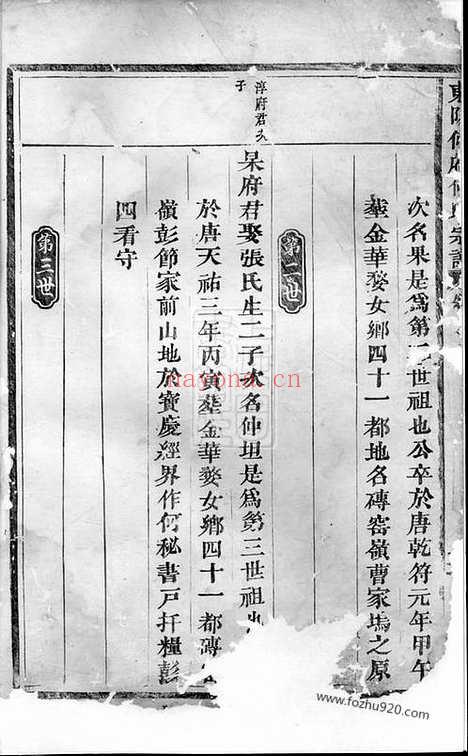 東陽何府何氏宗譜
次名果是為第二世祖也公卒於唐乾符元年甲午
塟金華婺女鄉四十一都地名磚窑嶺曹家塢之原
第二世
淳府君次
子
杲府君娶張氏生二子次名仲坦是為第三世祖
於唐天祐三年丙寅塟金華婺女鄉四十一都磚
嶺彭節家前山地於寶慶經界作何秘書戸扞糧彭
四看守
第三世
nayona.cn
www.fozhu920.com